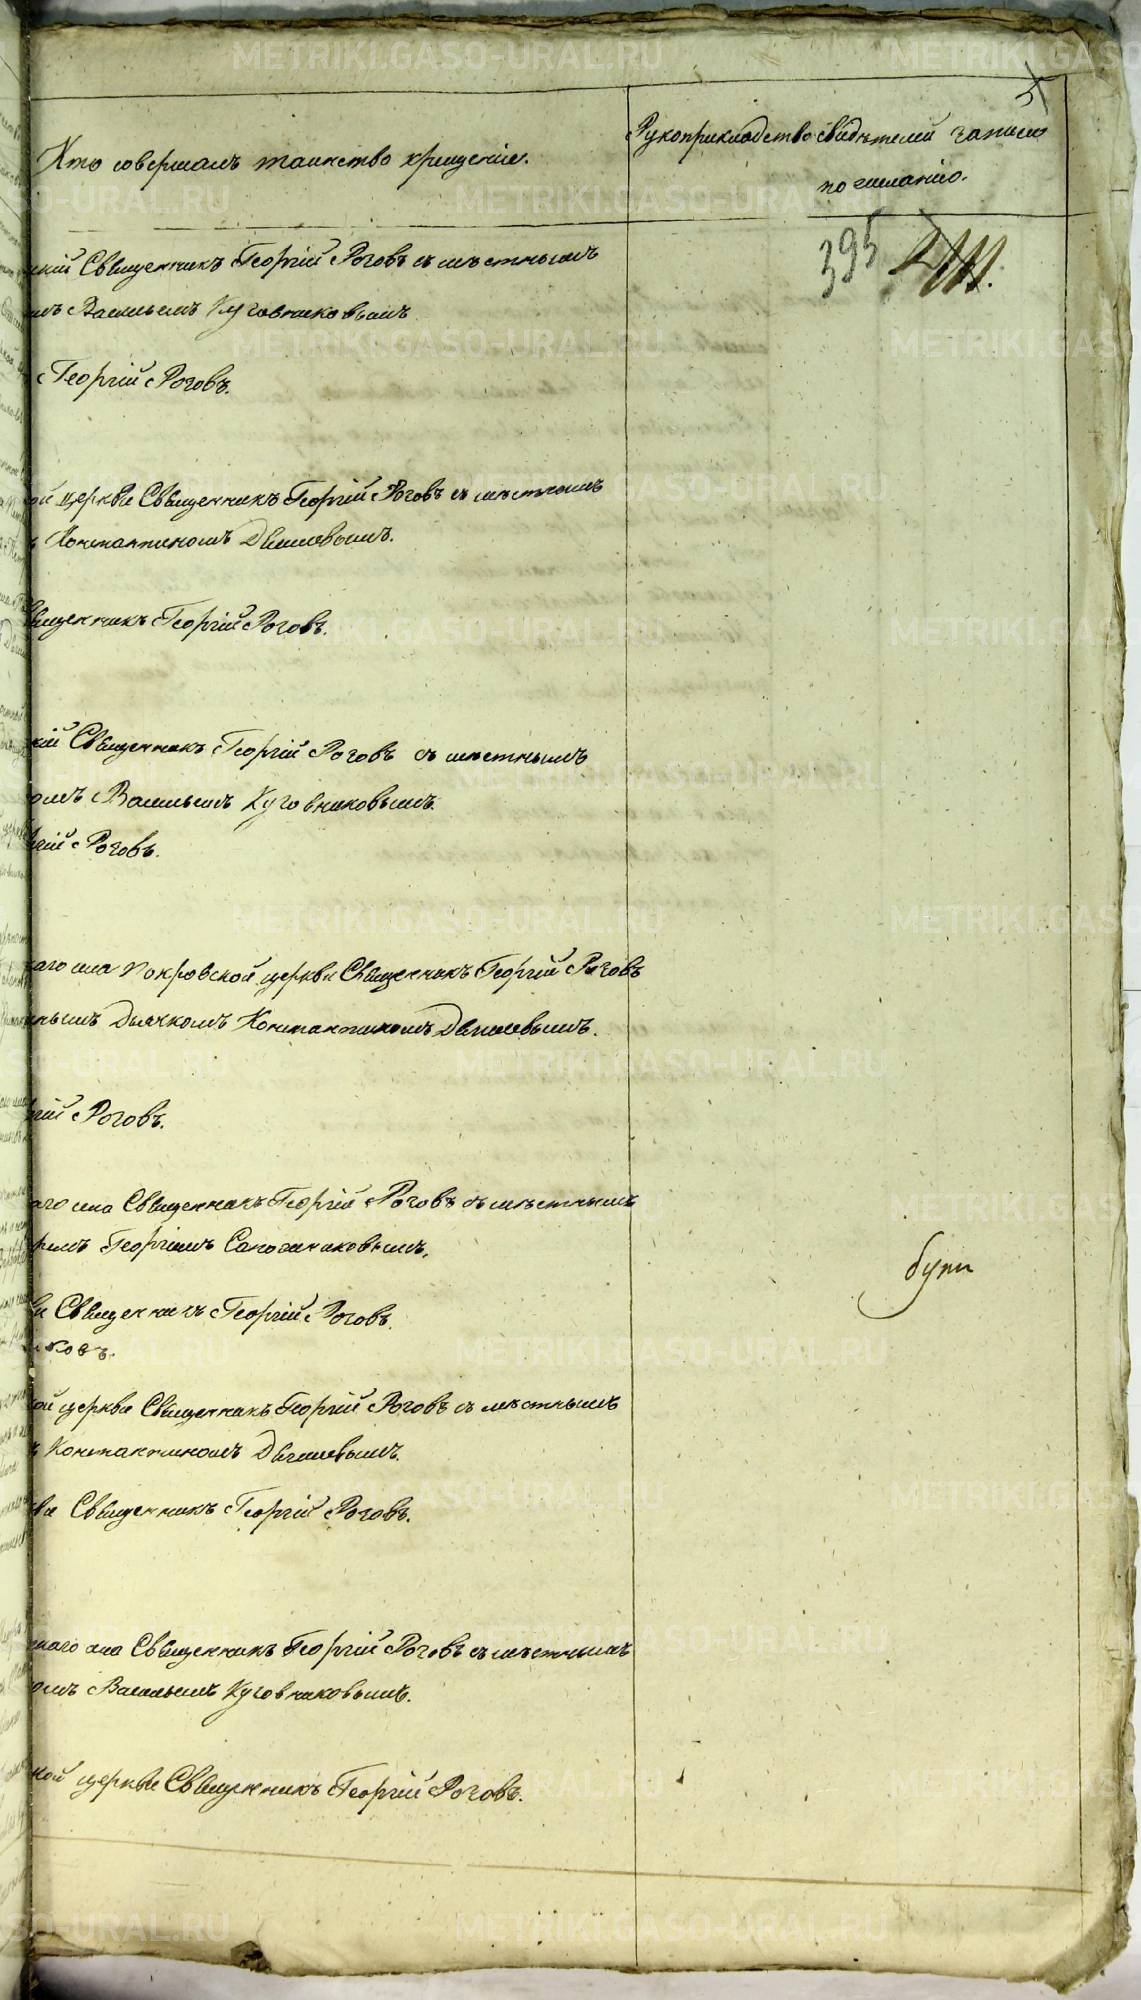 Кто совершалъ таинство крещенія.
Рукоприкладство свидѣтелей записи
по желанію.
395
Священникъ Георгій Роговъ съ мѣстнымъ
Васильемъ Куговниковымъ
Георгій Роговъ.
ой церкви Священникъ Георгій Роговъ съ мѣстнымъ
Константиномъ
Священникъ Георгій Роговъ.
кій Священникъ Георгій Роговъ съ мѣстнымъ
омъ Васильемъ Куговниковымъ.
гій Роговъ.
аго села Покровской церкви Священникъ Георгій Роговъ
нымъ Дьячкомъ Константиномъ
гій Роговъ.
аго села Священникъ Георгій Роговъ съ мѣстнымъ
Георгіемъ Сапожниковымъ.
Священникъ Георгій Роговъ.
иковъ.
ой церкви Священникъ Георгій Роговъ съ мѣстнымъ
Константиномъ
ви Священникъ Георгій Роговъ.
каго села Священникъ Георгій Роговъ съ мѣстнымъ
омъ Васильемъ Куговниковымъ.
кой церкви Священникъ Георгій Роговъ.
METRIKI.GASO-URAL.RU